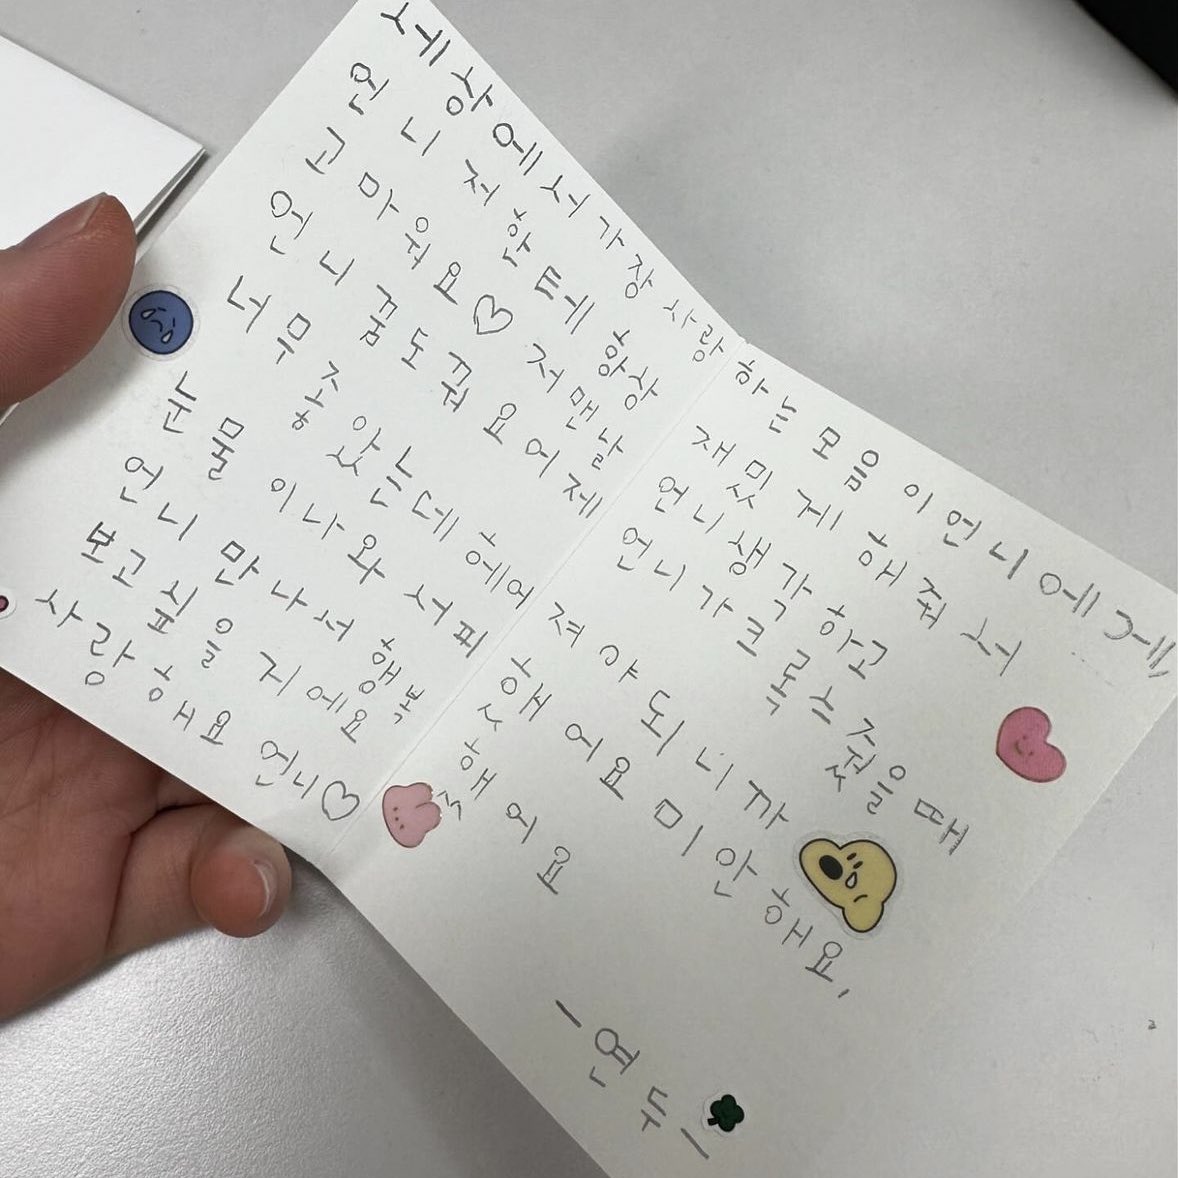 세상에서 가장 사랑하는 모음이언니에게,
언니 저한테 항상 재밌게 해줘서
고마워요♡ 저 맨날 언니생각하고
언니 꿈도 꿔요 어제 언니가 크록스 줬을때
너무 좋았는데 헤어져야되니까
눈물이나와서 피했어요 미안해요,
언니 만나서 행복했어요
보고싶을거에요
사랑해요 언니♡
-연두-